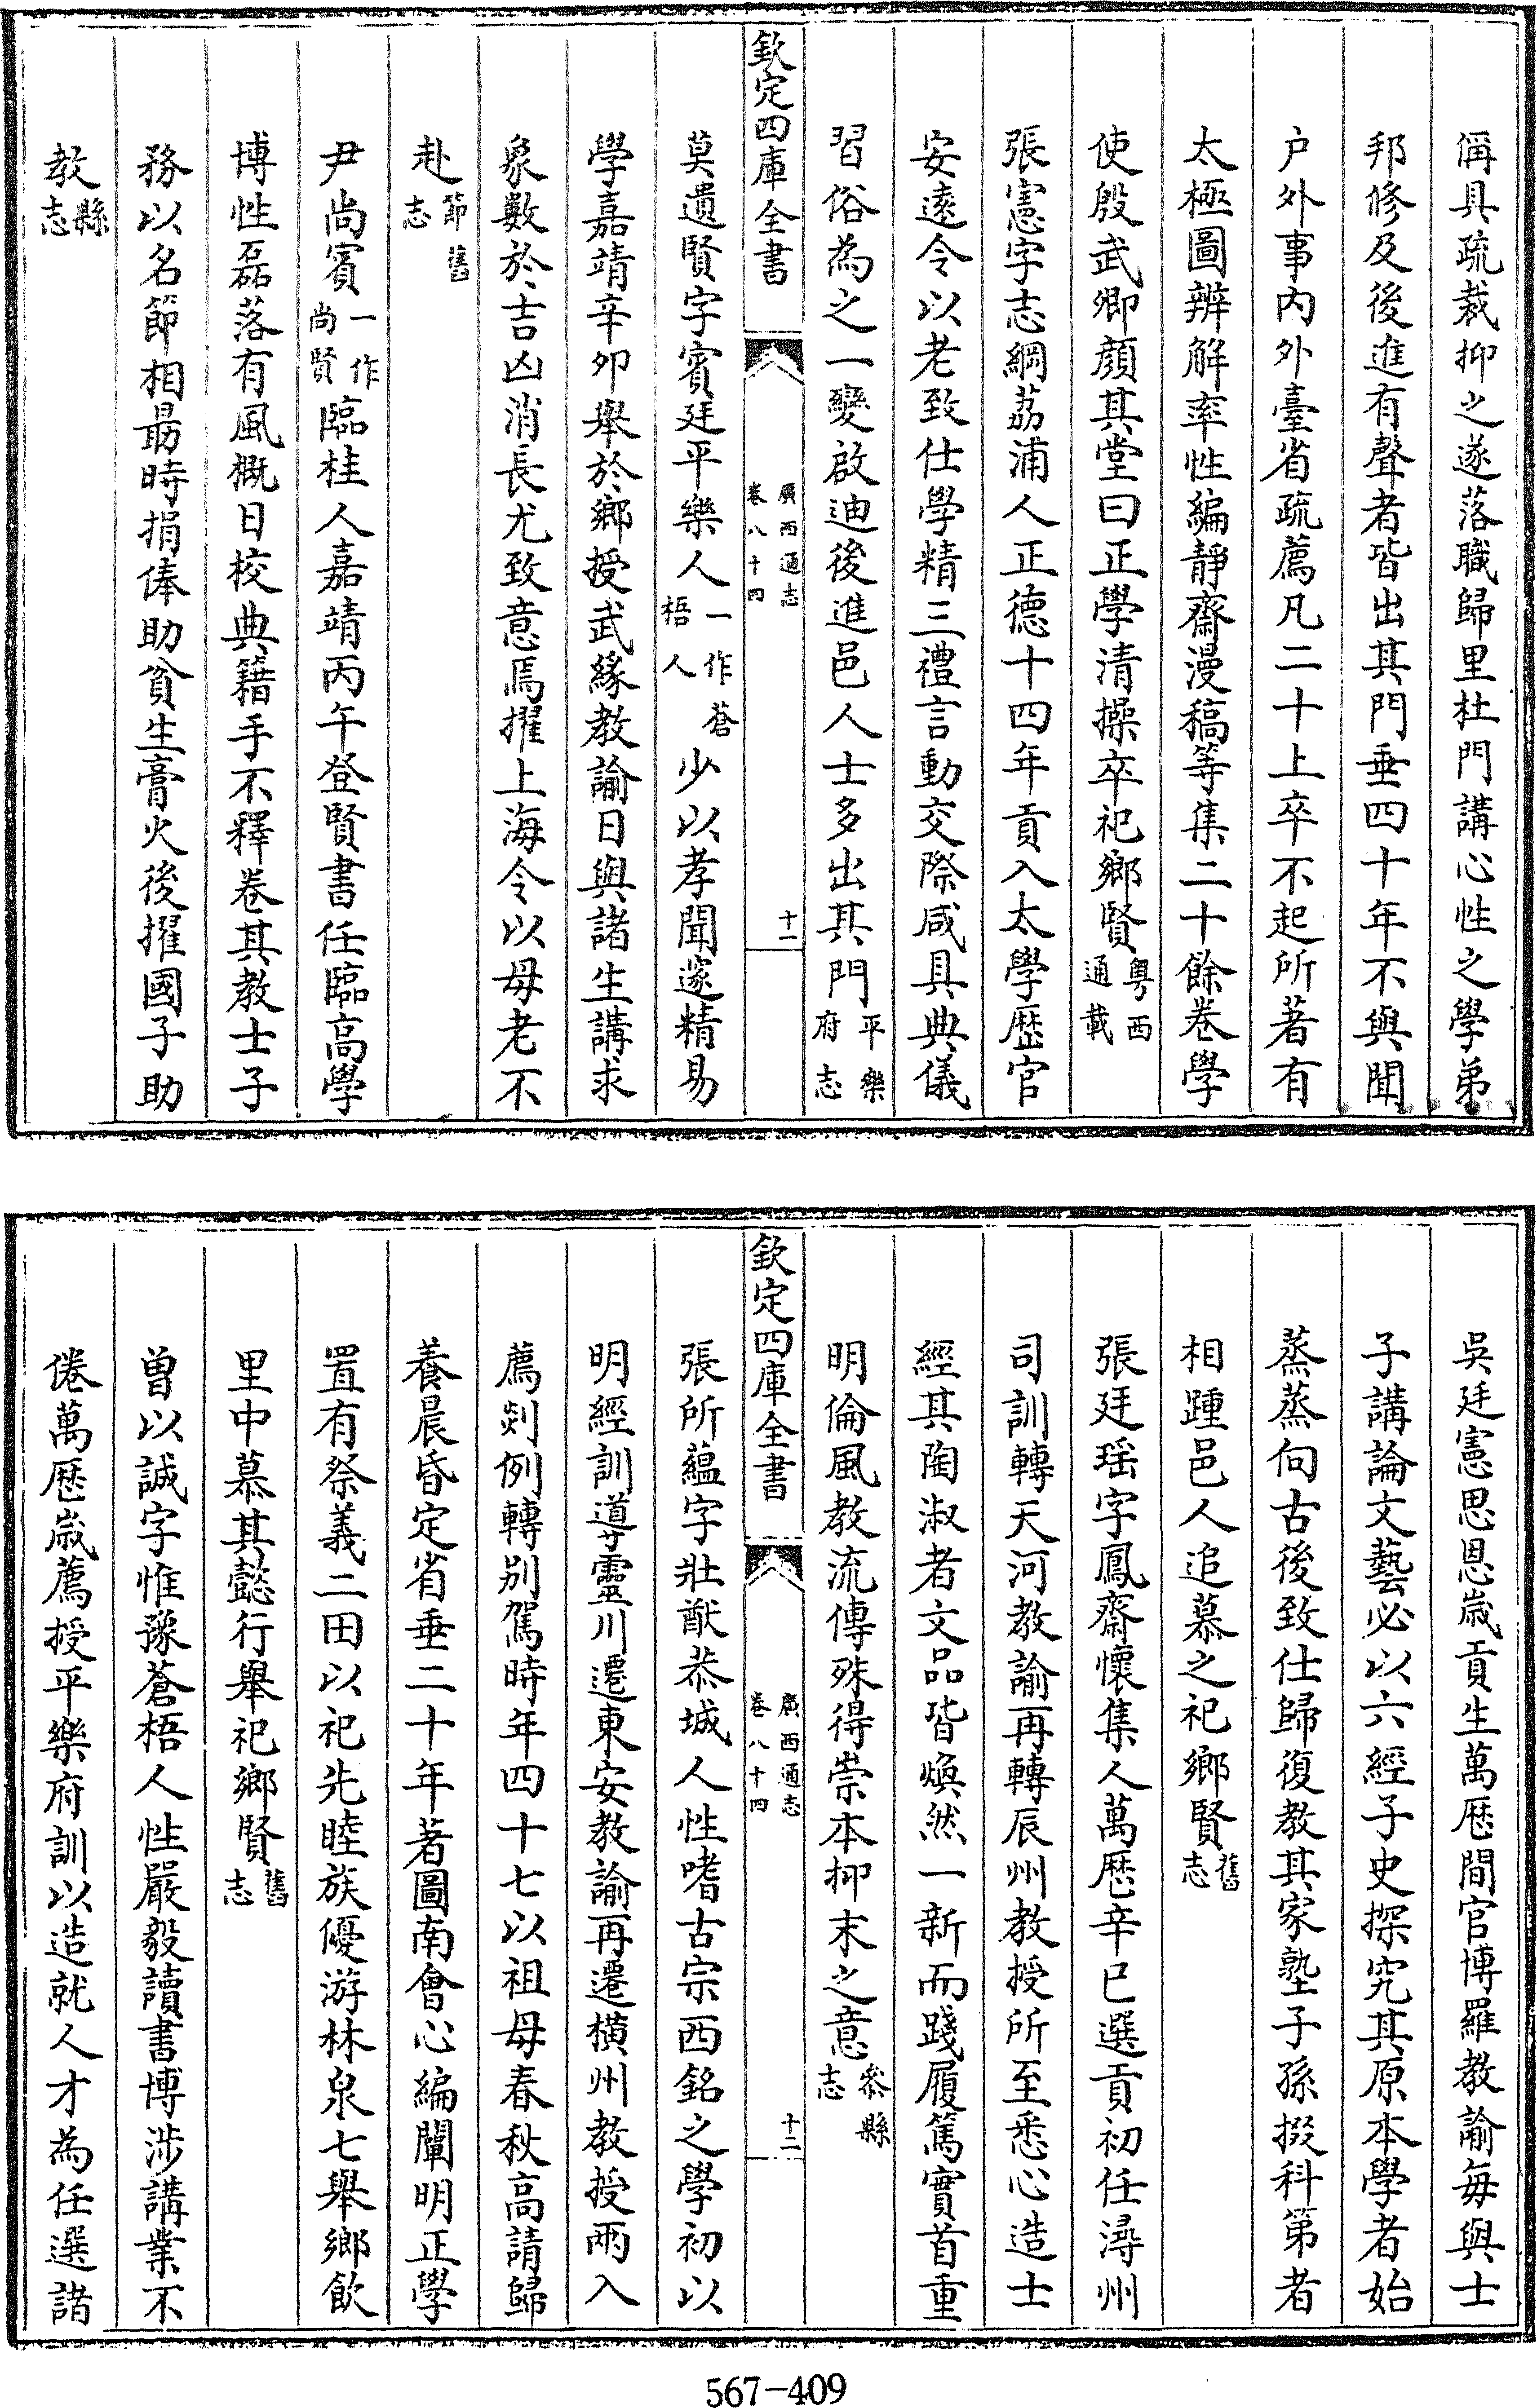 偁具疏裁抑之遂落職歸里杜門講心性之學弟
邦修及後進有聲者皆出其門垂四十年不與聞
户外事内外臺省疏薦凡二十上卒不起所著有
太極圖辨解率性編靜齋漫稿等集二十餘卷學
使殷武卿顔其堂曰正學清操卒祀鄉賢粤西通載
張憲字志綱荔浦人正德十四年貢入太學歴官
安遠令以老致仕學精三禮言動交際咸具典儀
習俗為之一變啟迪後進邑人士多出其門平樂府志
欽定四庫全書
廣西通志
卷八十四
十一
莫遺賢字賓廷平樂人一作蒼梧人少以孝聞邃精易
學嘉靖辛夘舉於鄉授武緣教諭日與諸生講求
象數於吉凶消長尤致意焉擢上海令以母老不
赴節舊志
尹尚賓一作尚賢臨桂人嘉靖丙午登賢書任臨高學
博性磊落有風概日校典籍手不釋卷其教士子
務以名節相朂時捐俸助貧生膏火後擢國子助
教縣志
吳廷憲思恩歲貢生萬歴間官博羅教諭毎與士
子講論文藝必以六經子史探究其原本學者始
蒸蒸向古後致仕歸復教其家塾子孫掇科第者
相踵邑人追慕之祀鄉賢舊志
張廷瑶字鳳齋懷集人萬歴辛巳選貢初任潯州
司訓轉天河教諭再轉辰州教授所至悉心造士
經其陶淑者文品皆煥然一新而踐履篤實首重
明倫風教流傳殊得崇本抑末之意叅縣志
欽定四庫全書
廣西通志
卷八十四
十二
張所藴字壯猷恭城人性嗜古宗西銘之學初以
明經訓導靈川遷東安教諭再遷横州教授兩入
薦剡例轉别駕時年四十七以祖母春秋高請歸
養晨昏定省垂二十年著圖南會心編闡明正學
置有祭義二田以祀先睦族優游林泉七舉鄉飲
里中慕其懿行舉祀鄉賢舊志
曽以誠字惟豫蒼梧人性嚴毅讀書博涉講業不
倦萬歴歲薦授平樂府訓以造就人才為任選諸
567-409